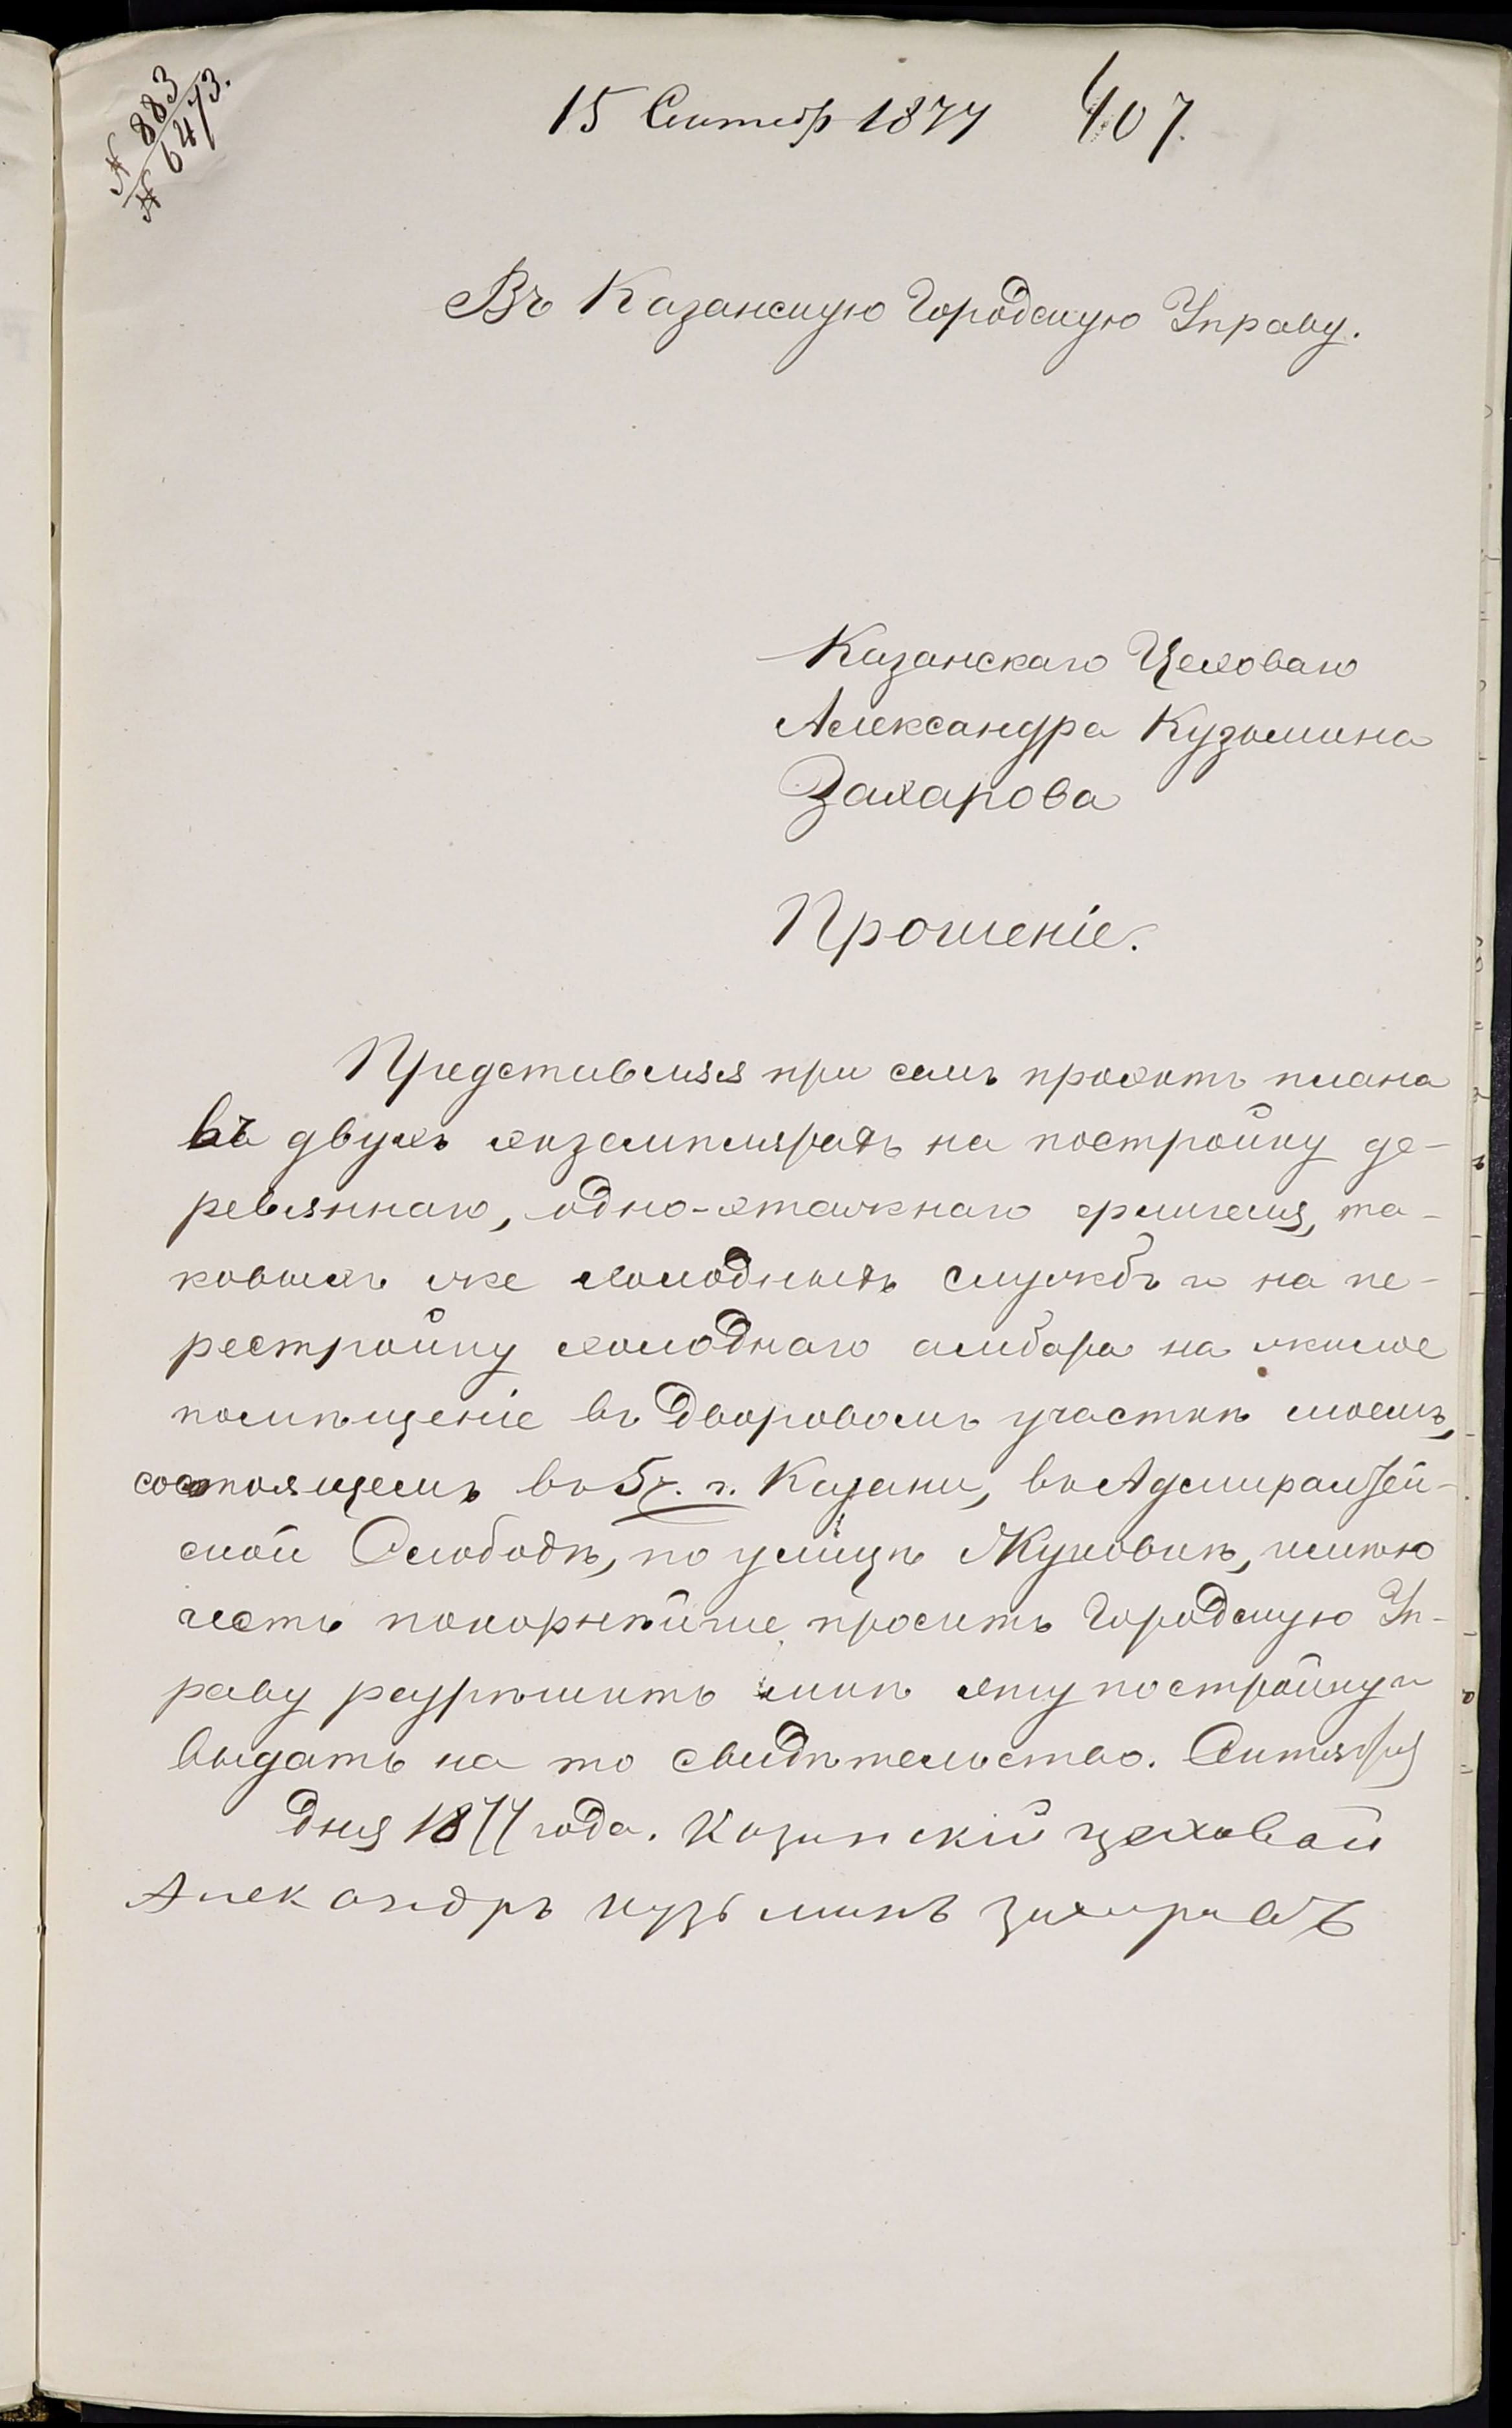 № 883
№ 6473.
15 Сентяб 1877 407.
Въ Казанскую Городскую Управу.
Казанскаго Цеховаго
Александра Кузьмина
Захарова
Прошеніе.
Представляя при семъ проэктъ плана
въ двухъ экземплярахъ на постройку де-
ревяннаго, одно-этажнаго флигеля, та-
ковыхъ же холодныхъ службъ и на пе-
рестройку холоднаго амбара на жилое
помѣщеніе въ дворовомъ участкѣ моемъ,
состоящемъ въ 5 ч. г. Казани, въ Адмиралтей-
ской Слободѣ, по улицѣ Жуковкѣ, имѣю
честь покорнѣйше просить Городскую Уп-
раву разрѣшить мнѣ эту постройку и
выдать на то свидѣтельство. Сентября
дня 1877 года. Казанскій цеховой
Александръ Кузьминъ Захаровъ